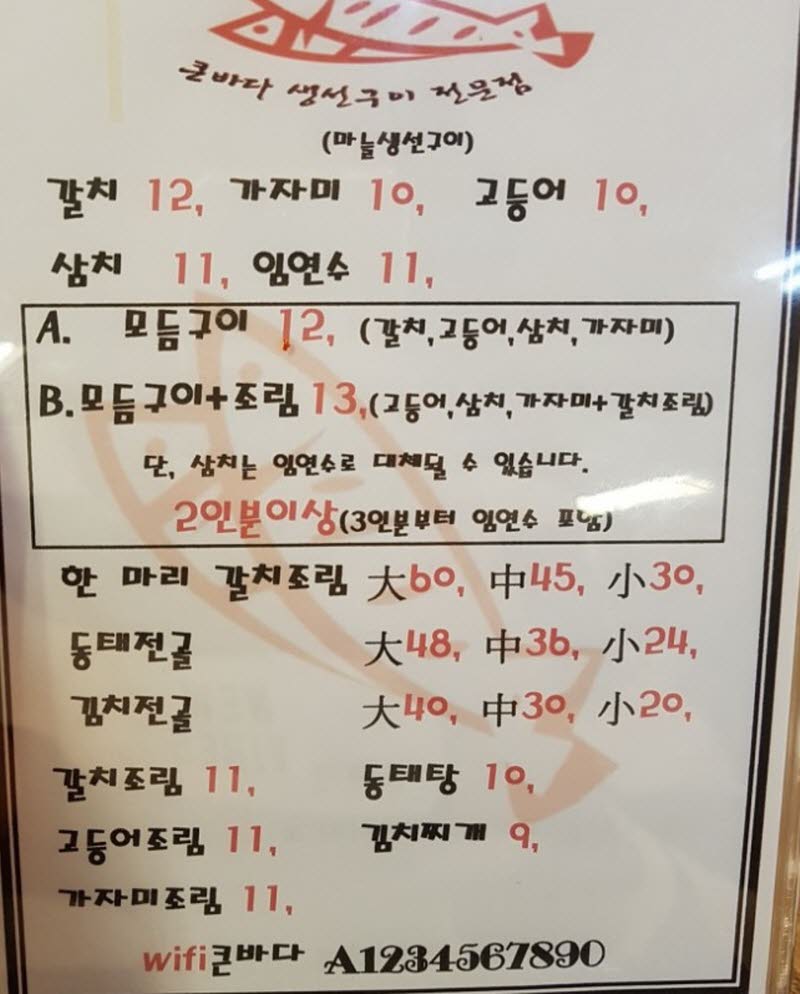 큰바다 생선구이 전문점
(마늘생선구이)
갈치 12, 가자미 10, 고등어 10,
삼치 11, 임연수 11,
A. 모듬구이 12, (갈치,고등어,삼치,가자미)
B.모듬구이+조림 13,(고등어,삼치,가자미+갈치조림)
단, 삼치는 임연수로 대체될 수 있습니다.
2인분이상(3인분부터 임연수 포함)
한 마리 갈치조림 大60, 中45, 小30,
동태전골 大48, 中36, 小24,
김치전골 大40, 中30, 小20,
갈치조림 11, 동태탕 10,
고등어조림 11, 김치찌개 9,
가자미조림 11,
wifi큰바다 A1234567890